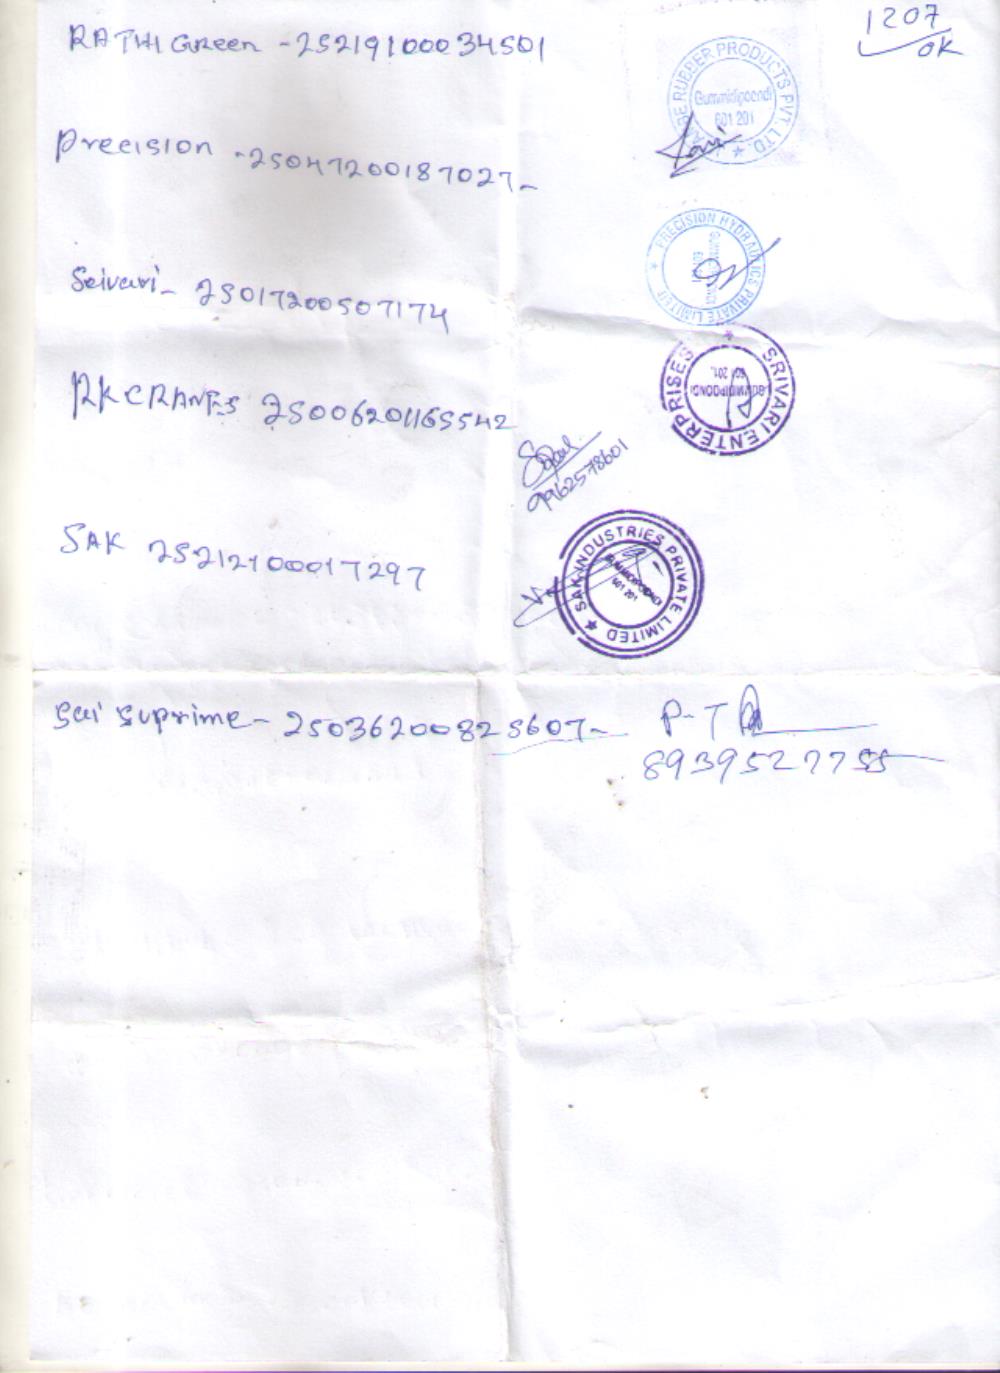 1207
OK
RATHI Green - 25219100034501
RUBBER PRODUCTS PVT. LTD. ★
Gummidipoondi
601 201
Precision - 25047200187027
★ PRECISION HYDRAULICS PRIVATE LIMITED
Srivari - 25017200507174
★ SRIVARI ENTERPRISES
GUMMIDIPOONDI
601 201.
RK CRANES 25006201165542
9962578601
SAK 25212100017297
★ SAK INDUSTRIES PRIVATE LIMITED
GUMMIDIPOONDI
601 201
Sai Suprime - 25036200825607
P-T
8939527755